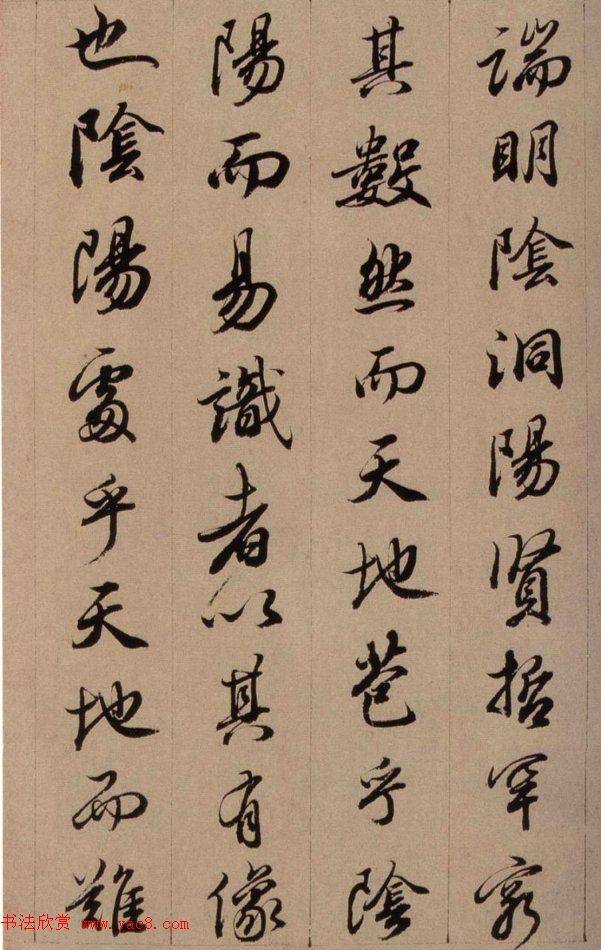 端明陰洞陽賢哲罕窮
其數然而天地苞乎陰
陽而易識者以其有像
也陰陽處乎天地而難
书法欣赏 www.yac8.com